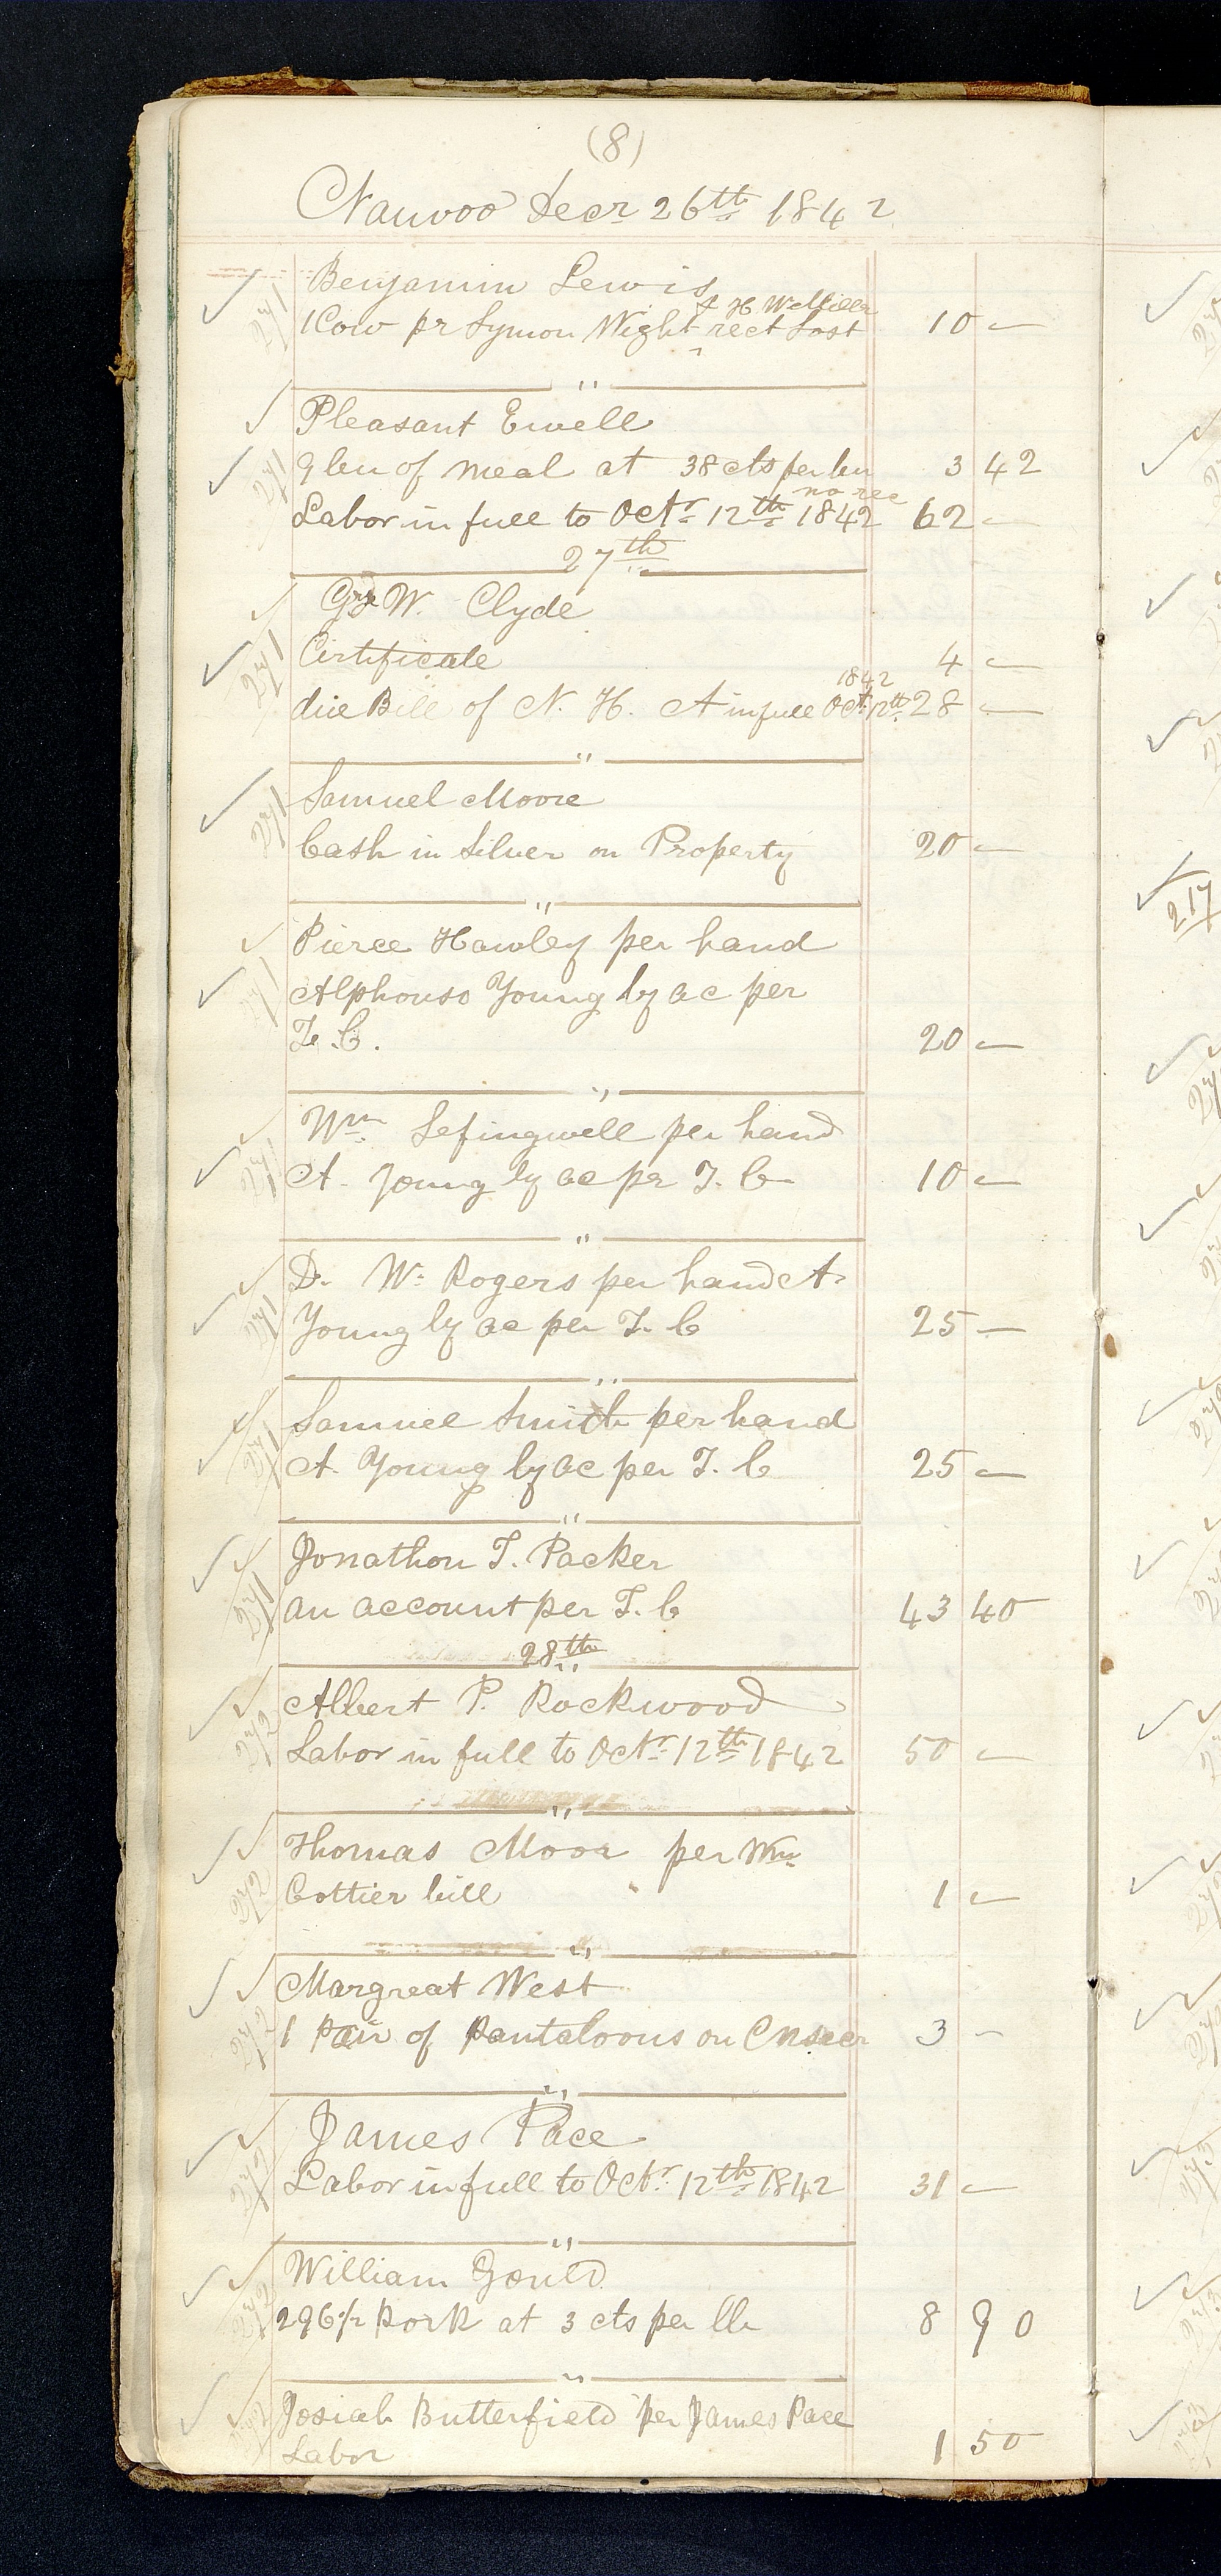 (8)
Nauvoo Decr 26th 1842
Benjamin Lewis
& H Wellilla
1 Cow pr Lymon Wight rect Lost 10 —
"
Pleasant Ewell
9 bu of meal at 38 cts per bu 3 42
no rec
Labor in full to Octr 12th 1842 62 —
27th
W. Clyde
Certificate 4 —
1842
due Bill of N. H. A in full Oct 12th 28 —
"
Samuel Moore
Cash in Silver on Property 20 —
"
Pierce Hawley per hand
Alphonso Young by ac per
T. C. 20 —
"
Wm Lefingwell per hand
A. Young by ac per T. C 10 —
"
Dr. W. Rogers per hand A.
Young by ac per T. C 25 —
"
Samuel Smith per hand
A. Young by ac per T. C 25 —
"
Jonathon T. Packer
an account per T. C 43 40
28th
"
Albert P. Rockwood
Labor in full to Octr 12th 1842 50 —
"
Thomas Moor per Wm
Cottier bill 1 —
"
Margreat West
1 Pair of Pantaloons on 3 -
"
James Pace
Labor in full to Octr 12th 1842 31 —
"
William Gould
296 1/2 Pork at 3 cts per lb 8 90
"
Josiah Butterfield per James Pace
Labor 1 50